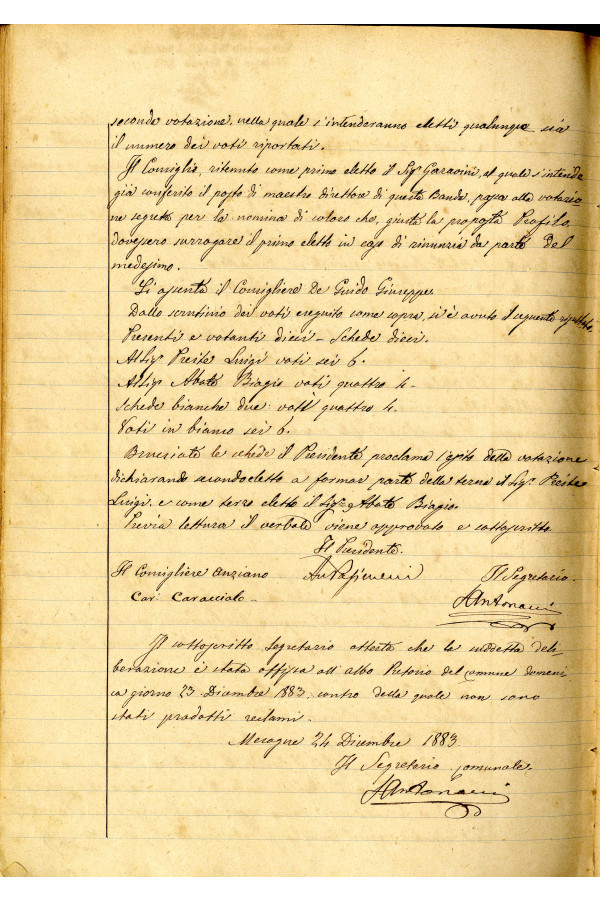 seconda votazione, nella quale s'intenderanno eletti qualunque sia
il numero dei voti riportati.
Il Consiglio, ritenuto come primo eletto il Sigr Garavini, al quale s'intende
già conferito il posto di maestro direttore di questa Banda, passa alla votazio
ne segreta per la nomina di coloro che, giusta la proposta Profilo,
dovessero surrogare il primo eletto in caso di rinunzia da parte del
medesimo.
Si assenta il Consigliere De Guido Giuseppe
Dallo scrutinio dei voti eseguito come sopra, si è avuto il seguente risultato.
Presenti e votanti dieci - Schede dieci.
Al Sigr Preite Luigi voti sei 6.
Al Sigr Abate Biagio voti quattro 4-
Schede bianche due voti quattro 4.
Voti in bianco sei 6.
Bruciate le schede il Presidente proclama l'esito della votazione
dichiarando secondo eletto a formar parte della terna il Sigr Preite
Luigi, e come terzo eletto il Sigr Abate Biagio.
Previa lettura il verbale viene approvato e sottoscritto
Il Presidente.
Il Consigliere anziano
Il Segretario.
Car: Caracciolo -
Antonucci
Il sottoscritto Segretario attesta che la suddetta deli
berazione è stata affissa all'albo Pretorio del comune domeni
ca giorno 23 Dicembre 1883, contro della quale non sono
stati prodotti reclami.
Mesagne 24 Dicembre 1883
Il Segretario comunale.
Antonucci